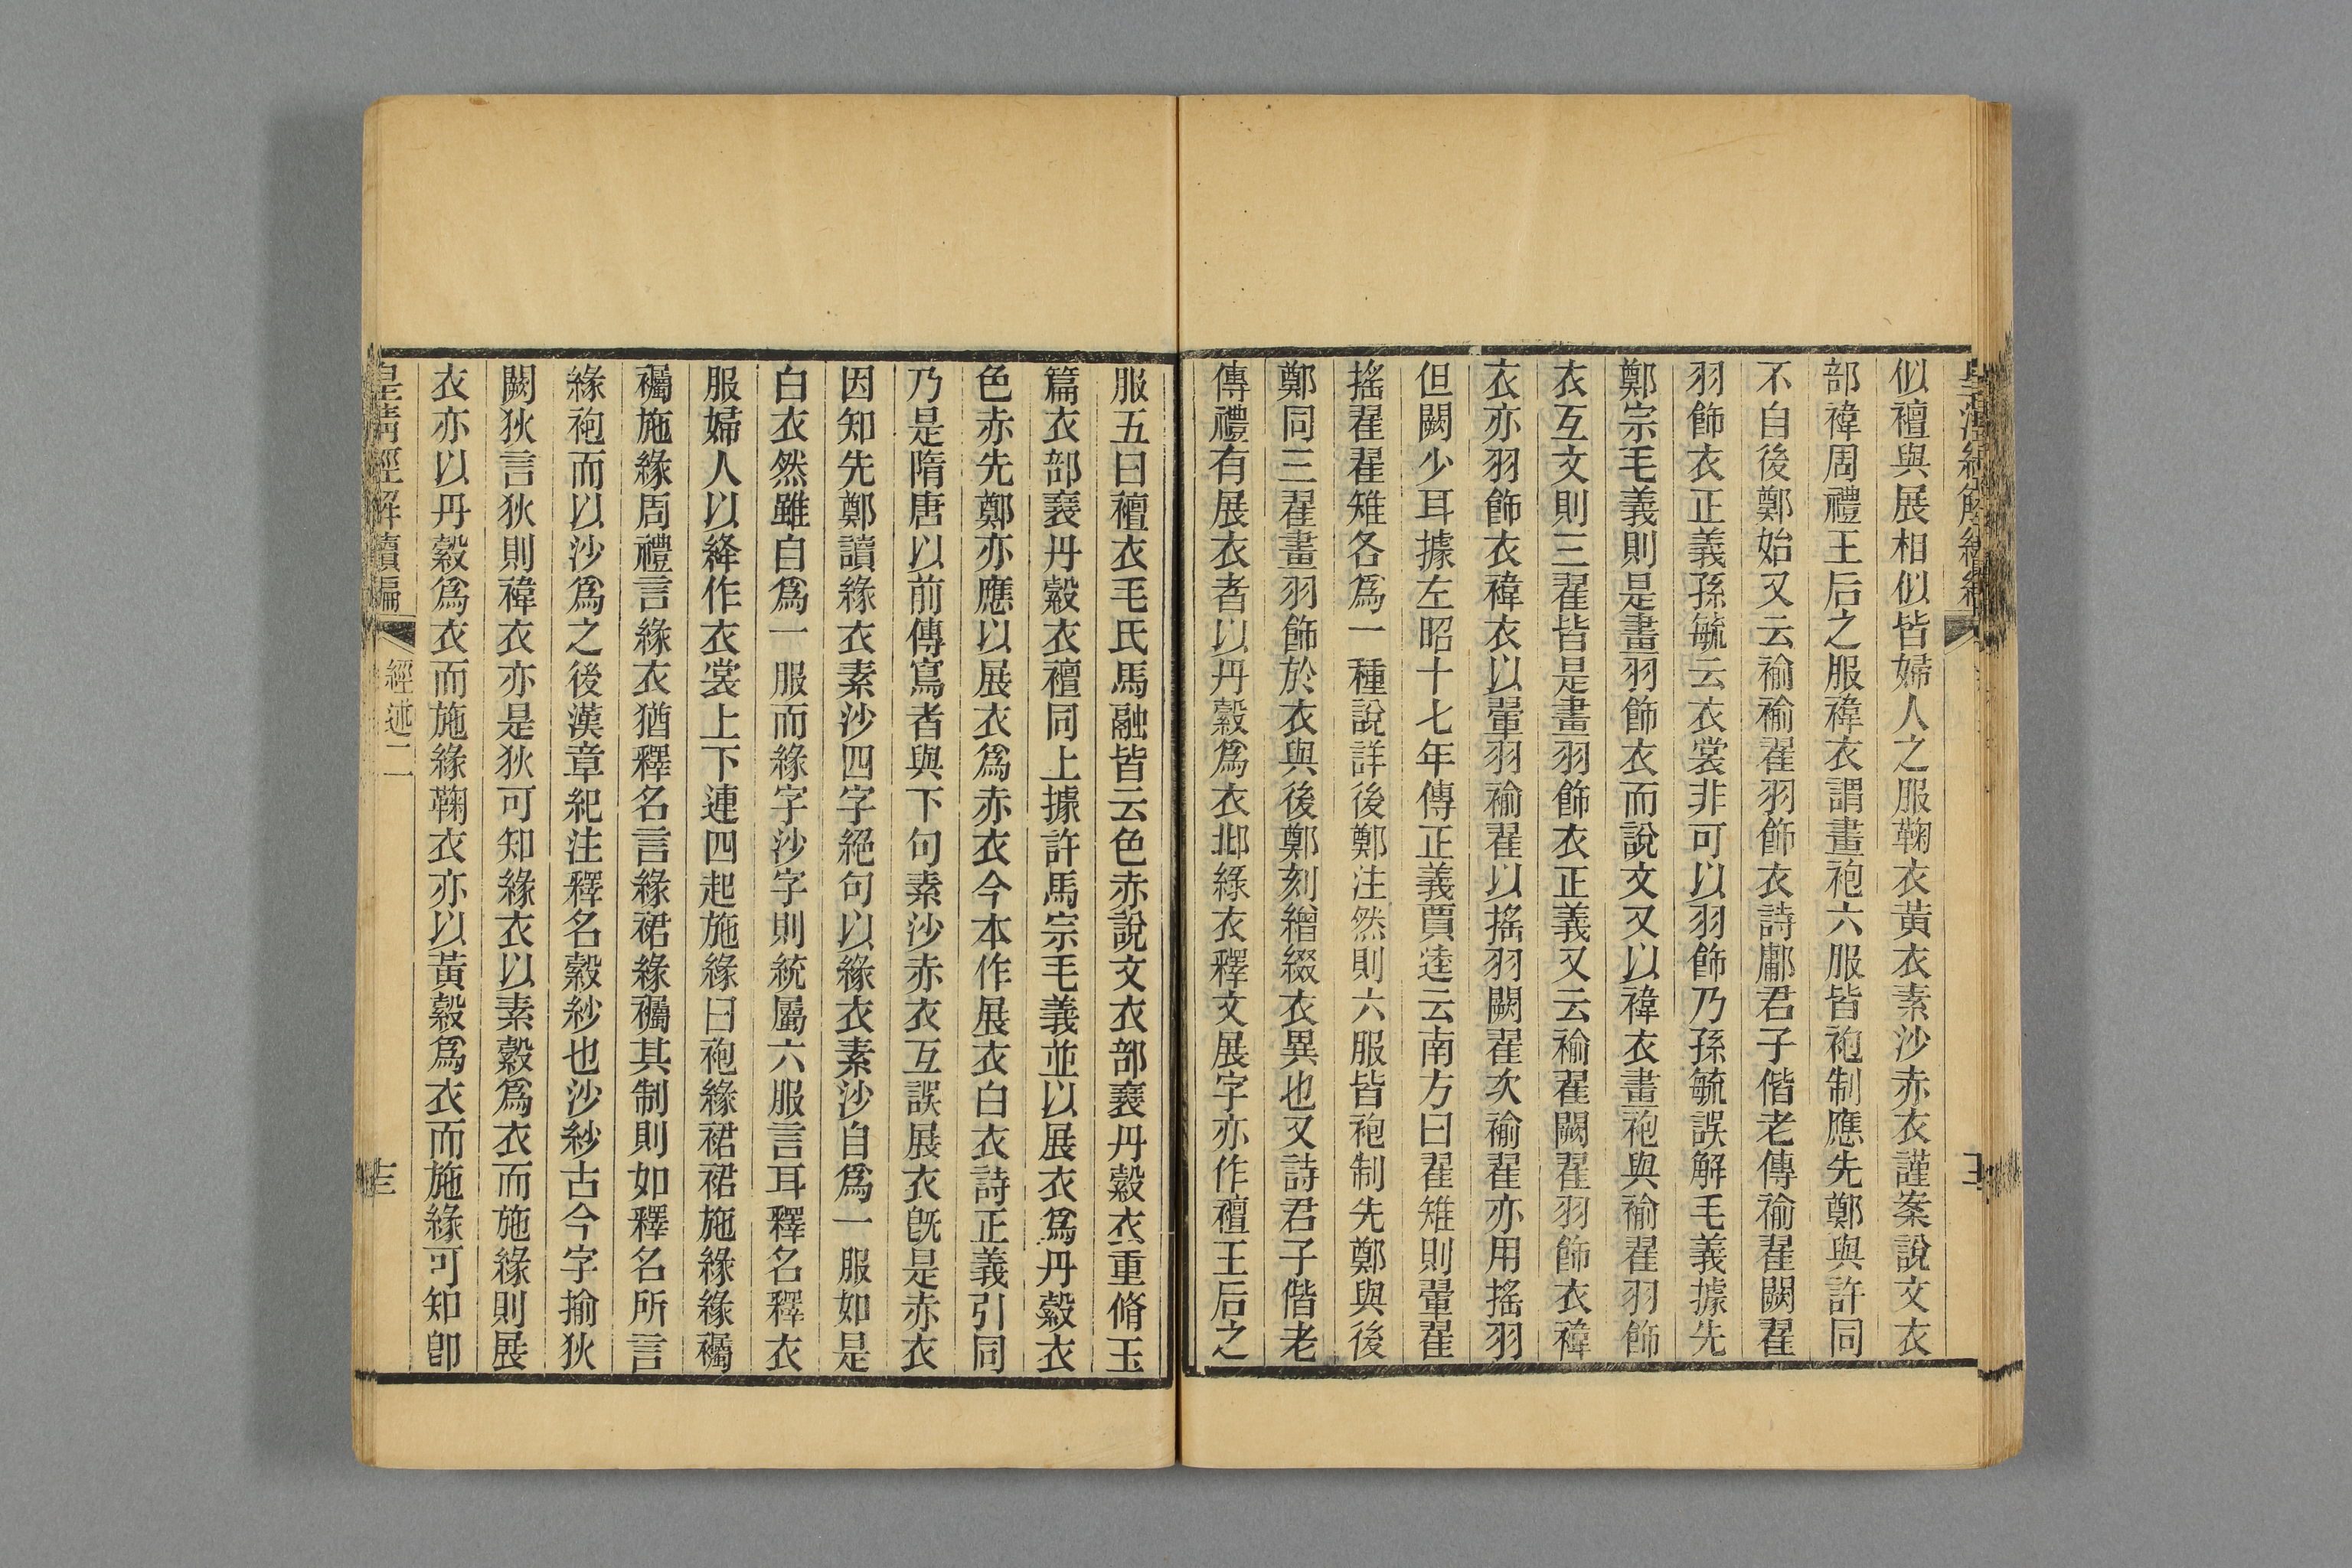 似襢與展相似皆婦人之服鞠衣黃衣素沙赤衣謹案說文衣
部褘周禮王后之服褘衣謂畫袍六服皆袍制應先鄭與許同
不白後鄭始又云褕褕翟羽飾衣詩鄘君子偕老傳褕翟闕翟
羽飾衣正義孫毓云衣裳非可以羽飾乃孫毓誤解毛義據先
鄭宗毛義則是畫羽飾衣而說文又以褘衣畫袍與褕翟羽飾
衣互文則三翟皆是畫羽飾衣正義又云褕翟闕翟羽飾衣褘
衣亦羽飾衣褘衣以翬羽褕翟以搖羽闕翟次褕翟亦用搖羽
但闕少耳據左昭十七年傳正義賈逵云南方曰翟雉則翬翟
搖翟翟雉各爲一種說詳後鄭注然則六服皆袍制先鄭與後
鄭同三翟畫羽飾於衣與後鄭刻繒綴衣異也又詩君子偕老
傳禮有展衣者以丹縠爲衣邶綠衣釋文展字亦作襢王后之
服五曰襢衣毛氏馬融皆云色赤說文衣部襄丹縠衣重脩玉
篇衣部襄丹縠衣襢同上據許馬宗毛義並以展衣爲丹縠衣
色赤先鄭亦應以展衣爲赤衣今本作展衣白衣詩正義引同
乃是隋唐以前傳寫者與下句素沙赤衣互誤展衣旣是赤衣
因知先鄭讀緣衣素沙四字絕句以緣衣素沙自爲一服如是
白衣然雖白爲一服而緣字沙字則統屬六服言耳釋名釋衣
服婦人以絳作衣裳上下連四起施緣曰袍緣裙裙施緣緣襡
襡施緣周禮言緣衣猶釋名言緣裙緣襡其制則如釋名所言
緣袍而以沙爲之後漢章紀注釋名縠紗也沙紗古今字揄狄
闕狄言狄則褘衣亦是狄可知緣衣以素縠爲衣而施緣則展
衣亦以丹縠爲衣而施緣鞠衣亦以黃縠爲衣而施緣可知卽
皇清經解續編
經述二